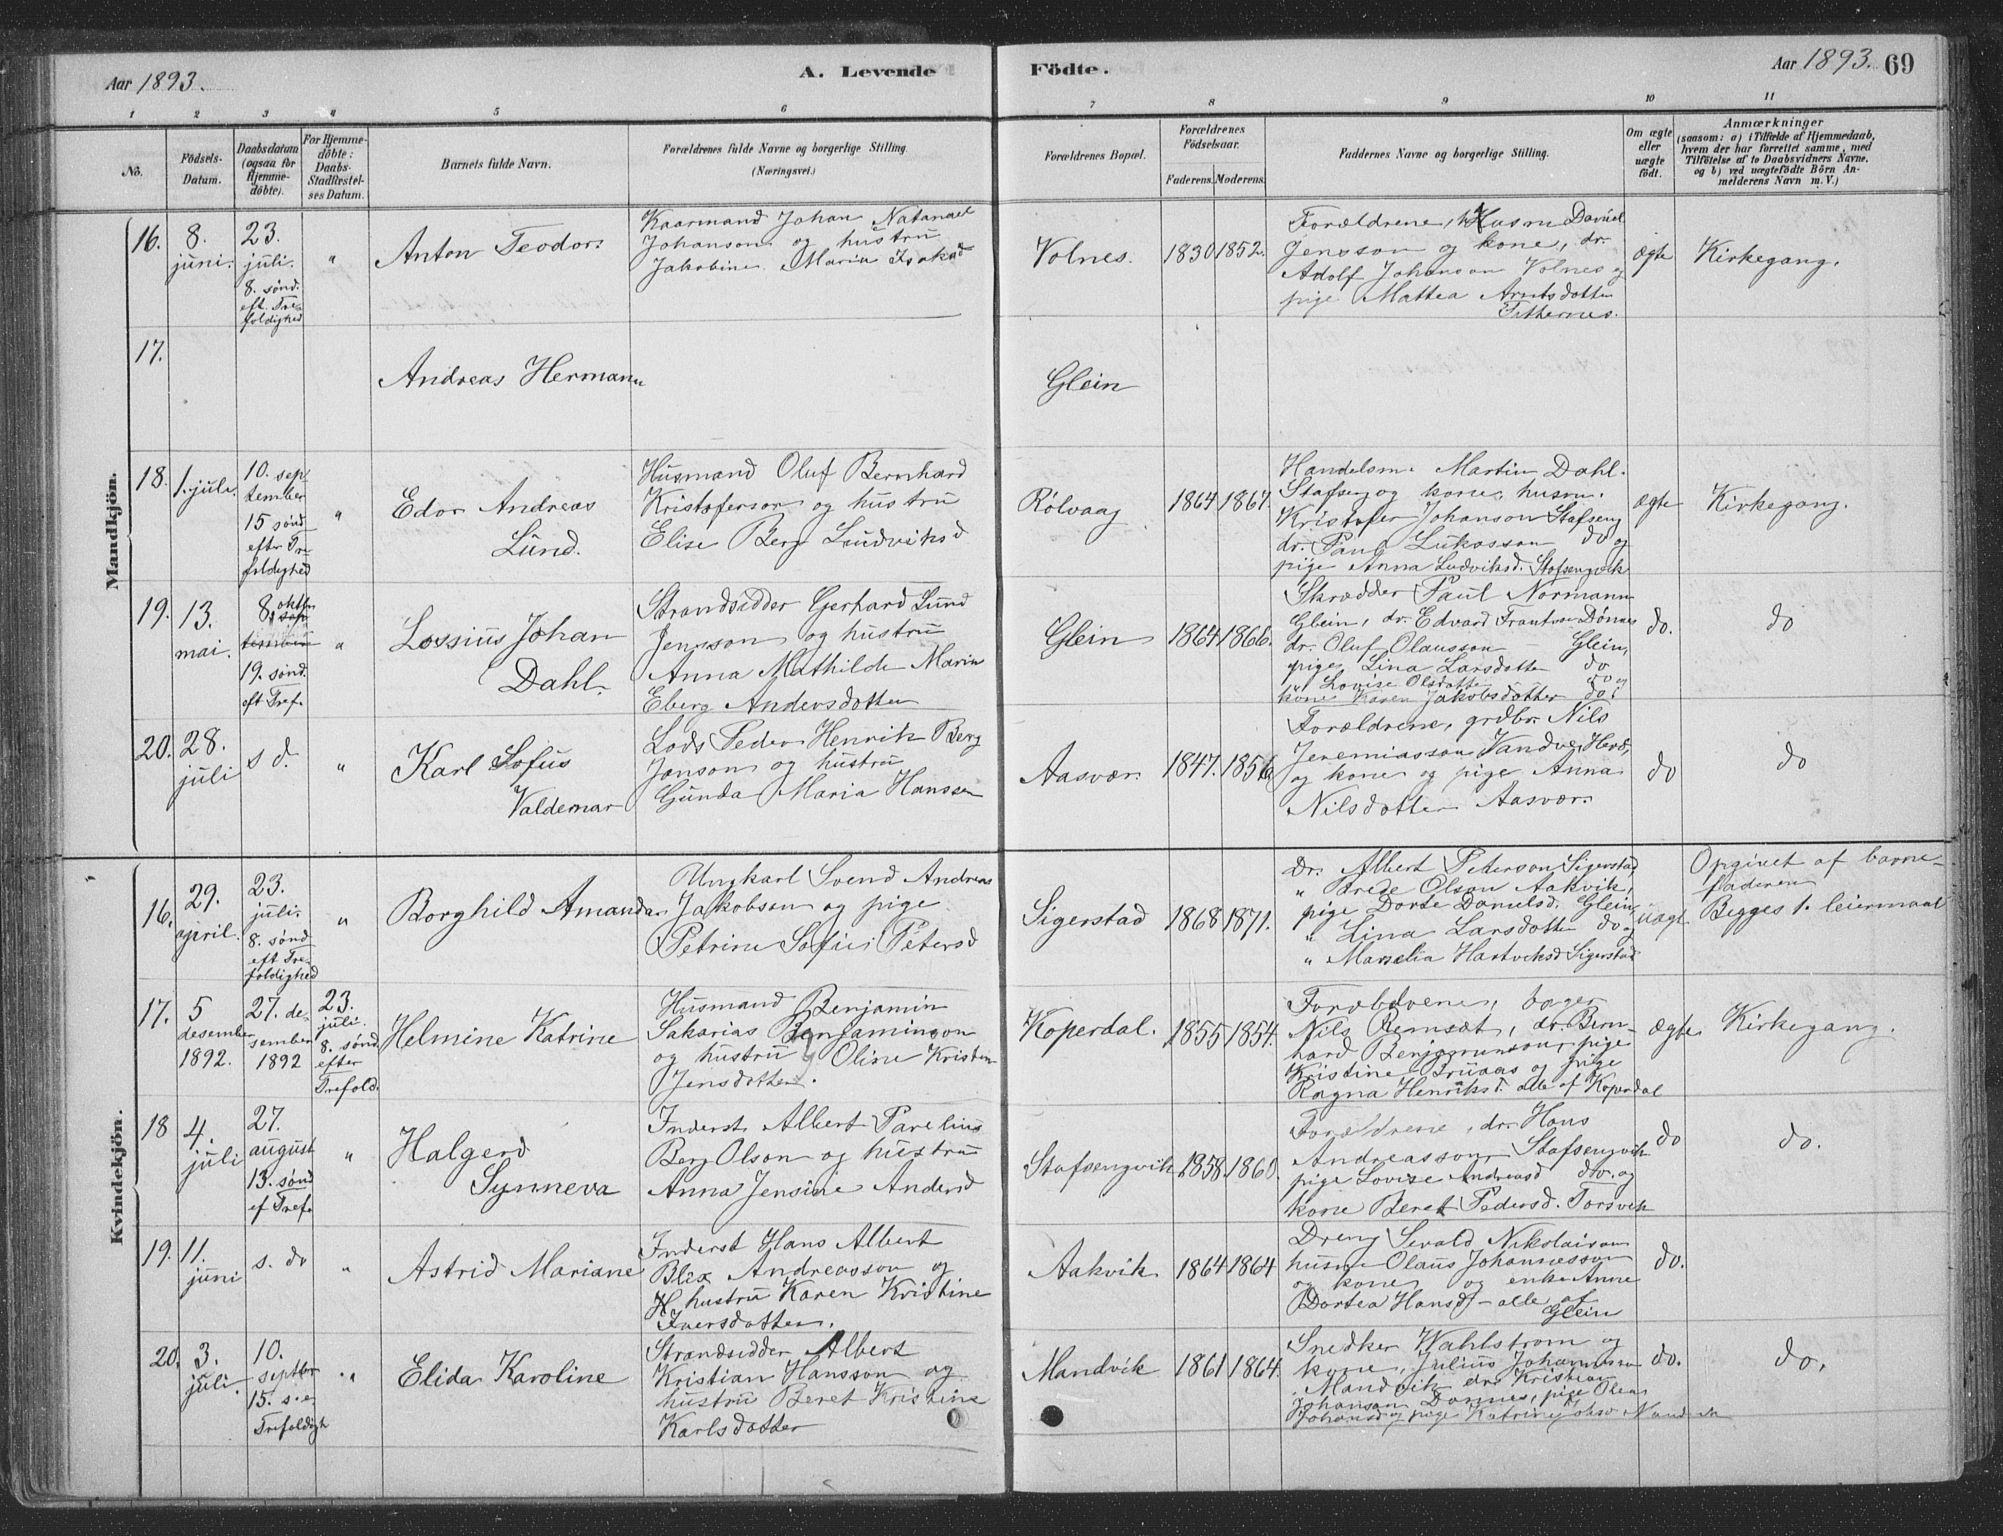 Aar 1893.
A. Levende
Födte.
Aar 1893. 69
1 2 3 4 5 6 7 8 9 10 11
No.
Födsels-Datum.
Daabsdatum (ogsaa for Hjemme-döbte).
For Hjemme-döbte: Daabs-Stadfæstel-ses Datum.
Barnets fulde Navn.
Forældrenes fulde Navne og borgerlige Stilling.
(Næringsvei.)
Forældrenes Bopæl.
Forældrenes Födselsaar.
Faderens. Moderens.
Faddernes Navne og borgerlige Stilling.
Om ægte eller uægte födt.
Anmærkninger
(saasom: a) i Tilfælde af Hjemmedaab,
hvem der har forrettet samme, med
Tilföielse af to Daabsvidners Navne.
og b) ved uægtefödte Börn An-
melderens Navn m. V.)
Mandkjön.
16. 8. juni. 23. juli. 8. sönd. eft. Tre-foldighed "
Anton Teodor.
Kaarmand Johan Natanael
Johanson og hustru
Jakobine Maria Isaksd
Volnes. 1830 1852.
Forældrene, Husm Daniel
Jensson og kone, dr.
Adolf Johanson Volnes og
pige Mattea Arntsdotter
ægte
Kirkegang.
17.
Andreas Hermann
Glein
18. 1. juli. 10. sep-tember 15 sönd efter Tre-foldighed "
Edor Andreas
Lund.
Husmand Oluf Bernhard
Kristoferson og hustru
Elise Berg Ludviksd
Rölvaag 1864 1867.
Handelsm. Martin Dahl.
Stafseng og kone, husm.
Kristofer Johanson Stafseng
dr. Paul Lukasson do og
pige Anna Ludviksd. Stafsengvik
ægte
Kirkegang.
19. 13. mai. 8. oktbr 19. sönd. eft Tref. "
Lossius Johan
Dahl.
Strandsidder Gerhard Lund
Jensson og hustru
Anna Mathilde Marin
Eberg Andersdotter
Glein 1864 1866.
Skrædder Paul Normann
Glein, dr. Edvard Dönnes
dr. Oluf Olausson Glein,
pige Lina Larsdotter do
" Lovise Olsdotter do og
kone Karen Jakobsdotter do.
do.
do
20. 28. juli s d. "
Karl Sofus
Valdemar
Lods Peder Henrik Berg
Jonson og hustru
Gunda Maria Hanssen
Aasvær 1847. 1856
Forældrene, grdbr. Nils
Jeremiasson Vandve, Herö,
og kone og pige Anna
Nilsdotter Aasvær.
do
do
Kvindekjön.
16. 29. april. 23. juli. 8. sönd eft Tre-foldighed "
Borghild Amanda
Ungkarl Svend Andreas
Jakobson og pige
Petrine Sofie Petersd
Sigerstad 1868 1871.
Dr. Albert Peterson Sigerstad
" Olson Aakvik,
pige Dorte Danielsd. Glein
" Lina Larsdotter do og
" Hartviksd Sigerstad
uægte
Opgivet af barne-
faderen
Begges 1. leiermaal
17. 5 desember 1892. 27. de-sember 1892 23. juli. 8. sönd efter Trefold.
Helmine Katrine
Husmand Benjamin
Sakarias Benjaminson
og hustru Oline Kristine
Jensdotter.
Koperdal. 1855 1854.
Forældrene, bager
Nils Remsæt, dr. Bern-
hard Benjaminson, pige
Kristine Truaas og pige
Ragna Henriksd. alle af Koperdal
ægte
Kirkegang.
18 4. juli 27. august 13. sönd ef Tref. "
Halgerd
Synneva
Inderst Albert Parelius
Berg Olson og hustru
Anna Jensine Andersd
Stafsengvik 1858. 1860.
Forældrene, dr. Hans
Andreasson Stafsengvik
pige Lovise Andreasd do. og
kone Beret Pedersd. Torsvik
do
do.
19. 11. juni s. do "
Astrid Mariane
Inderst Hans Albert
Blix Andreasson og
hustru Karen Kristine
Iversdotter.
Aakvik 1864 1864
Dreng Sevald Nikolaison
husm Olaus Johannesson
og kone og enke Anne
Dortea Hansd - alle af
Glein
do.
20. 3. juli. 10. septbr 15. s. e. Trefoldigh "
Elida Karoline
Strandsidder Albert
Kristian Hansson og
hustru Beret Kristine
Karlsdotter
Mandvik 1861 1864.
Snedker Wahlström og
kone, Julius Johannesen
Mandvik dr. Kristian
Johanson Dönnes, pige Olea
Johansd og pige Katrine
do.
do.